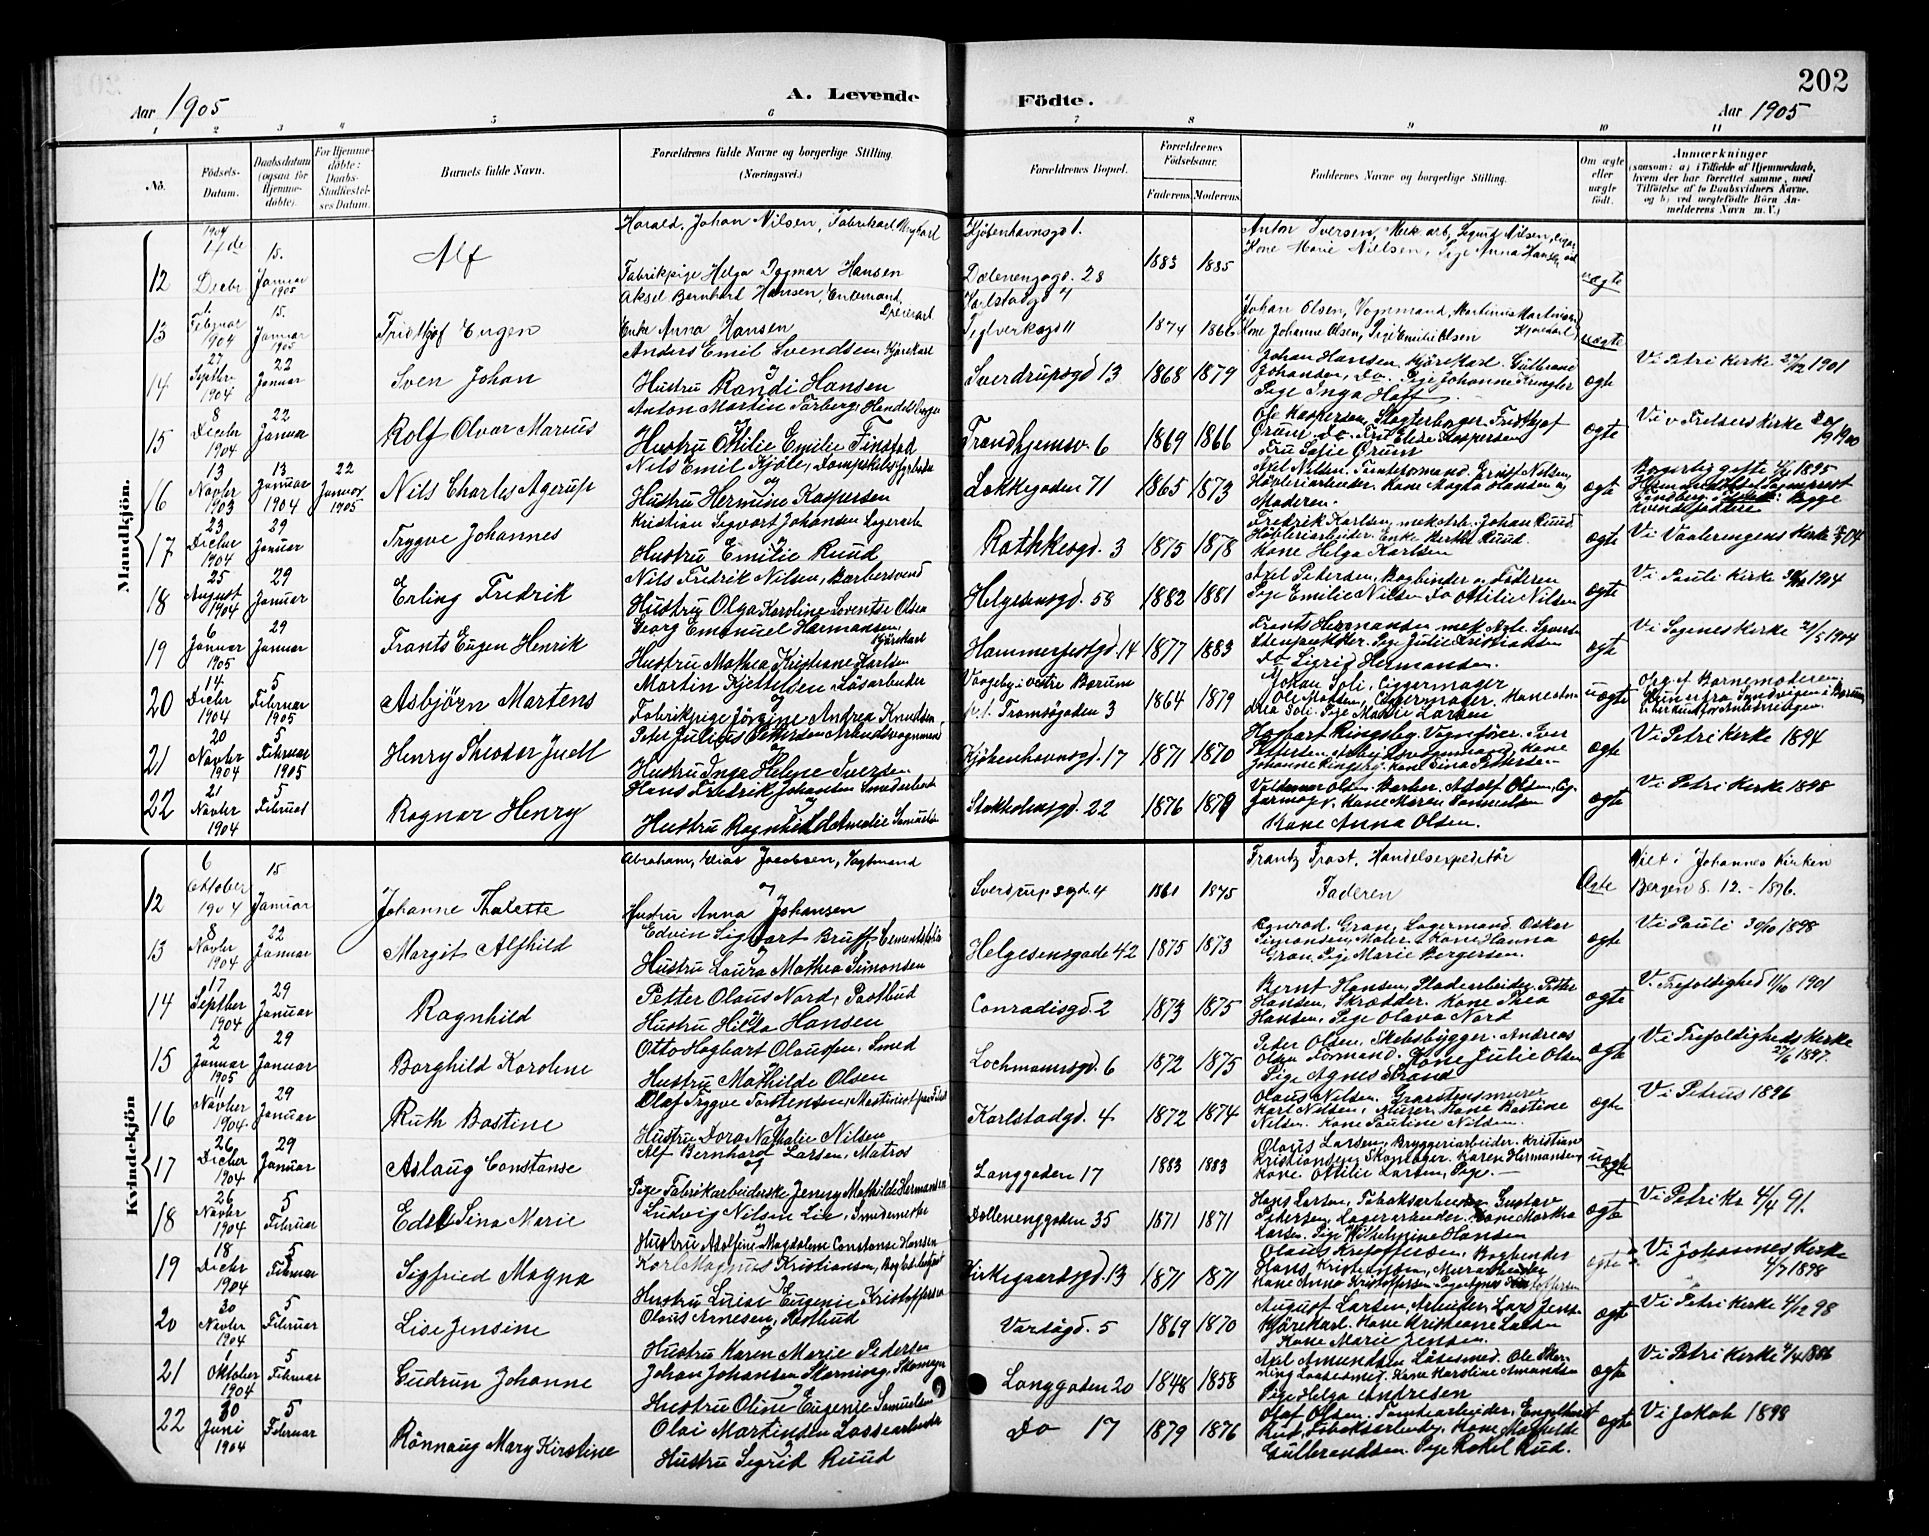 202
Aar 1905
A. Levende
Födte.
Aar 1905
1 2 3 4 5 6 7 8 9 10 11
No.
Födsels-Datum.
Daabsdatum (ogsaa for Hjemme-döbte).
For Hjemme-döbte: Daabs-Stadfæstel-ses Datum.
Barnets fulde Navn.
Forældrenes fulde Navne og borgerlige Stilling. (Næringsvei.)
Forældrenes Bopæl.
Forældrenes Födselsaar.
Faderens. Moderens.
Faddernes Navne og borgerlige Stilling.
Om ægte eller uægte födt.
Anmærkninger
(saasom: a) i Tilfælde af Hjemmedaab, hvem der har forrettet samme, med Tilföielse af to Daabsvidners Navne. og b) ved uægtefödte Börn An-melderens Navn m. V.)
Mandkjön.
12 1904 Decbr 15. Januar 1905 Alf
Harald Johan Nilsen, Fabrikarb
Fabrikpige Helga Dagmar Hansen
Kjöbenhavnsgd 1.
Dælenenggd. 28 1883 1885
Anton Iversen, Mek arb, Sigurd Nilsen,
Kone Marie Nielsen, Pige Anna Hansen
uægte
13 Februar 1904 15. Januar 1905 Fridthjof Eugen
Aksel Bernhard Hansen, Enkemand,
Enke Anna Hansen
Karlstadgd 4
Teglverksgd 11 1874 1866
Johan Olsen, Vognmand, Martinius Martinsen
Kone Johanne Olsen, Pige Emilie Olsen
uægte
14 27 Septbr 1904 22 Januar Sven Johan
Anders Emil Svendsen, Kjörekarl
Hustru Randi Hansen
Sverdrupsgd 13 1868 1879
Johan Hansen, Kjörekarl. Gulbrand
Johansen, Do. Pige Johanne
Pige Inga Hoff
ægte Vi Petri Kirke 27/12 1901
15 8 Decbr 1904 22 Januar Rolf Olvar Marius
Anton Martin Torberg, Handelsborger
Hustru Ottilie Emilie Finstad
Trondhjemsv. 6 1869 1866
Ole Kaspersen, Slagterborger, Fridthjof
Fru Sofie Ørum
ægte Vi v Frelsers Kirke 1900
16 13 Novbr 1903 13 Januar 1904 22 Januar 1905 Nils Charles Agerup
Nils Emil Kjöle, Dampskibsfyrböder
og
Hustru Hermine Kaspersen
Løkkegaden 71 1865 1873
Axel Nilsen, Tomteformand. Ernst Nilsen
Høvleriarbeider. Kone Magda Hansen og
Moderen.
ægte Borgerlig gifte 1895
17 23 Decbr 1904 29 Januar Trygve Johannes
Kristian Sigvart Johansen Lagerarb
Hustru Emilie Ruud
Rathkesgd. 3 1875 1878
Fredrik Karlsen, mek Arb. Johan Ruud
Høvleriarbeider. Enke Berthe Ruud.
Kone Helga Karlsen
ægte Vi Vaalerengens Kirke
18 25 August 1904 29 Januar Erling Fredrik
Nils Fredrik Nilsen, Barbersvend
Hustru Olga Karoline Lorentse Olsen
Helgesensgd. 58 1882 1881
Axel Petersen, Bogbinder og Faderen
Pige Emilie Nilsen Do Ottilie Nilsen
ægte Vi Pauli Kirke 1904
19 6 Januar 1905 29 Januar Frants Eugen Henrik
Georg Emanuel Hermansen, Kjörekarl
Hustru Mathea Kristiane Karlsen
Hammerfestgd. 14 1877 1883
Frants Hermansen mek Arb.
Pige Julie Kristiansen
Do Sigrid Hermansen.
ægte Vi Sagenes Kirke 1904
20 14 Decbr 1904 5 Februar 1905 Asbjörn Martens
Martin Kjettelsen Løsarbeider
Fabrikpige Jörgine Andrea Knudsen
Vøiebyi vestre Bærum
p.t. Tromsögaden 3 1864 1879
Johan Soli, Ciggermager
Ole Madsen, Ciggermager, Kone
Soli. Pige Marie Larsen
uægte Opg. af Barnemoderen
21 20 Novbr 1904 5 Februar 1905 Henry Theodor Juell
Peter Julius Pettersen Arbeidsvognmand
Hustru Inga Helene Iversen
Kjöbenhavnsgd. 17 1871 1870
Johanne Ringsby, Kone Lina Pettersen
ægte Vi Petri Kirke 1894
22 21 Novbr 1904 5 Februar Ragnar Henry
Hans Fredrik Johansen Smedarbeider
og
Hustru Ragnhild Amalie Samuelsen
Stokholmsgd. 22 1876 1879
Valdemar Olsen Barber. Adolf Olsen, Cig-
Kone Anna Olsen.
ægte Vi Petri Kirke 1898
Kvindekjön
12 6 Oktober 1904 15 Januar Johanne Thalette
Abraham Elias Jacobsen, Vagtmand
og
Hustru Anna Johansen
Sverdrupsgd. 4 1861 1875
Frantz Trost, Handelsexpeditör
Faderen
Ægte Viet i Johannes Kirken
Bergen 8. 12. - 1896.
13 8 Novbr 1904 22 Januar Margit Alfhild
Edvin Sigvart Bruff, Cementstöber
Hustru Laura Mathea Simonsen
Helgesensgade 42 1875 1873
Konrad Gran, Lagermand. Oskar
Simonsen, Maler. Kone Hanna
Gran, Pige Marie Bergersen.
ægte Vi Pauli 30/10 1898
14 17 Septbr 1904 29 Januar Ragnhild
Petter Olaus Nord, Postbud
Hustru Hilda Hansen
Conradisgd. 2 1873 1875
Bernt Hansen, Pladearbeider, Petter
Hansen, Skrædder. Kone Thea
Hansen, Pige Olava Nord
ægte V. Trefoldighed 11/10 1901
15 2 Januar 1905 29 Januar Borghild Karoline
Otto Hagbart Olaussen. Smed
Hustru Mathilde Olsen
Lochmannsgd. 6 1872 1875
Peter Olsen, Skibsbygger. Andreas
Olsen Formand. Kone Julie Olsen
Pige Agnes Strand
ægte Vi Trefoldigheds Kirke
27/6 1897.
16 11 Novbr 1904 29 Januar Ruth Bastine
Olaf Trygve Torstensen, Maskinist
og
Hustru Dora Nathalie Nilsen
Karlstadgd. 4 1872 1874
Olaus Nilsen. Graastensmurer
Karl Nilsen, Murer. Kone Bastine
Nilsen. Kone Pauline Nilsen.
ægte Vi Petrus 1896
17 26 Decbr 1904 29 Januar Aslaug Constanse
Alf Bernhard Larsen, Matros
og
Pige Fabrikarbeiderske Jenny Mathilde Hermansen
Langgaden 17 1883 1883
Olaus Larsen, Bryggeriarbeider. Kristian
Kristiansen, Skomager. Karen Hermansen,
Kone. Ottilie Larsen, Pige.
uægte
18 26 Novbr 1904 5 Februar Edel Sina Marie
Ludvig Nilsen Lie, Smedmester
Hustru Adolfine Magdalene Constanse Hansen
Dællenenggaden 35 1871 1871
Hans Larsen, Tobaksarbeider Gustav
Pedersen, Lagerarbeider. Kone Martha
Larsen. Pige Wilhelmine Hansen
ægte Vi Petri k. 4/4 91.
19 18 Decbr 1904 5 Februar Sigfried Magna
Karl Magnus Kristiansen,
Hustru Luise Eugenie Kristoffersen
Kirkegaardsgd. 13 1871 1871
Olaus Kristoffersen, Bogbinder
Hans Kristiansen, Murarbeider
Kone Anna Kristoffersen
ægte Vi Johannes Kirke
4/7 1898
20 30 Novbr 1904 5 Februar Lise Jensine
Olaus Arnesen, Postbud
Hustru Karen Marie Pedersen
Vorsögd. 5 1869 1870
August Larsen, Arbeider, Lars Jensen
Kjörekarl. Kone Kristiane Larsen
Kone Marie Jensen.
ægte Vi Petri Kirke 4/12 98
21 1 Oktober 1904 5 Februar Gudrun Johanne
Johan Johansen Skarning, Skomager
Hustru Oline Eugenie Samuelsen
Langgaden 20 1848 1858
Axel Amundsen Låsesmed. Ole Skar-
ning Laasesmed, Kone Karoline Amundsen
Pige Helga Andresen
ægte Vi Petri Kirke
22 30 Juni 1904 5 Februar Rönnaug Mary Kirstine
Olai Martinsen Lossearbeider
Hustru Sigrid Ruud
Do 17 1879 1876
Olaf Olsen. Tomtearbeider, Engelhart
Rud, Fabriksarbeider, Kone Mathilde
Gulbrandsen. Pige Rakel Rud.
ægte Vi Jakob 1898